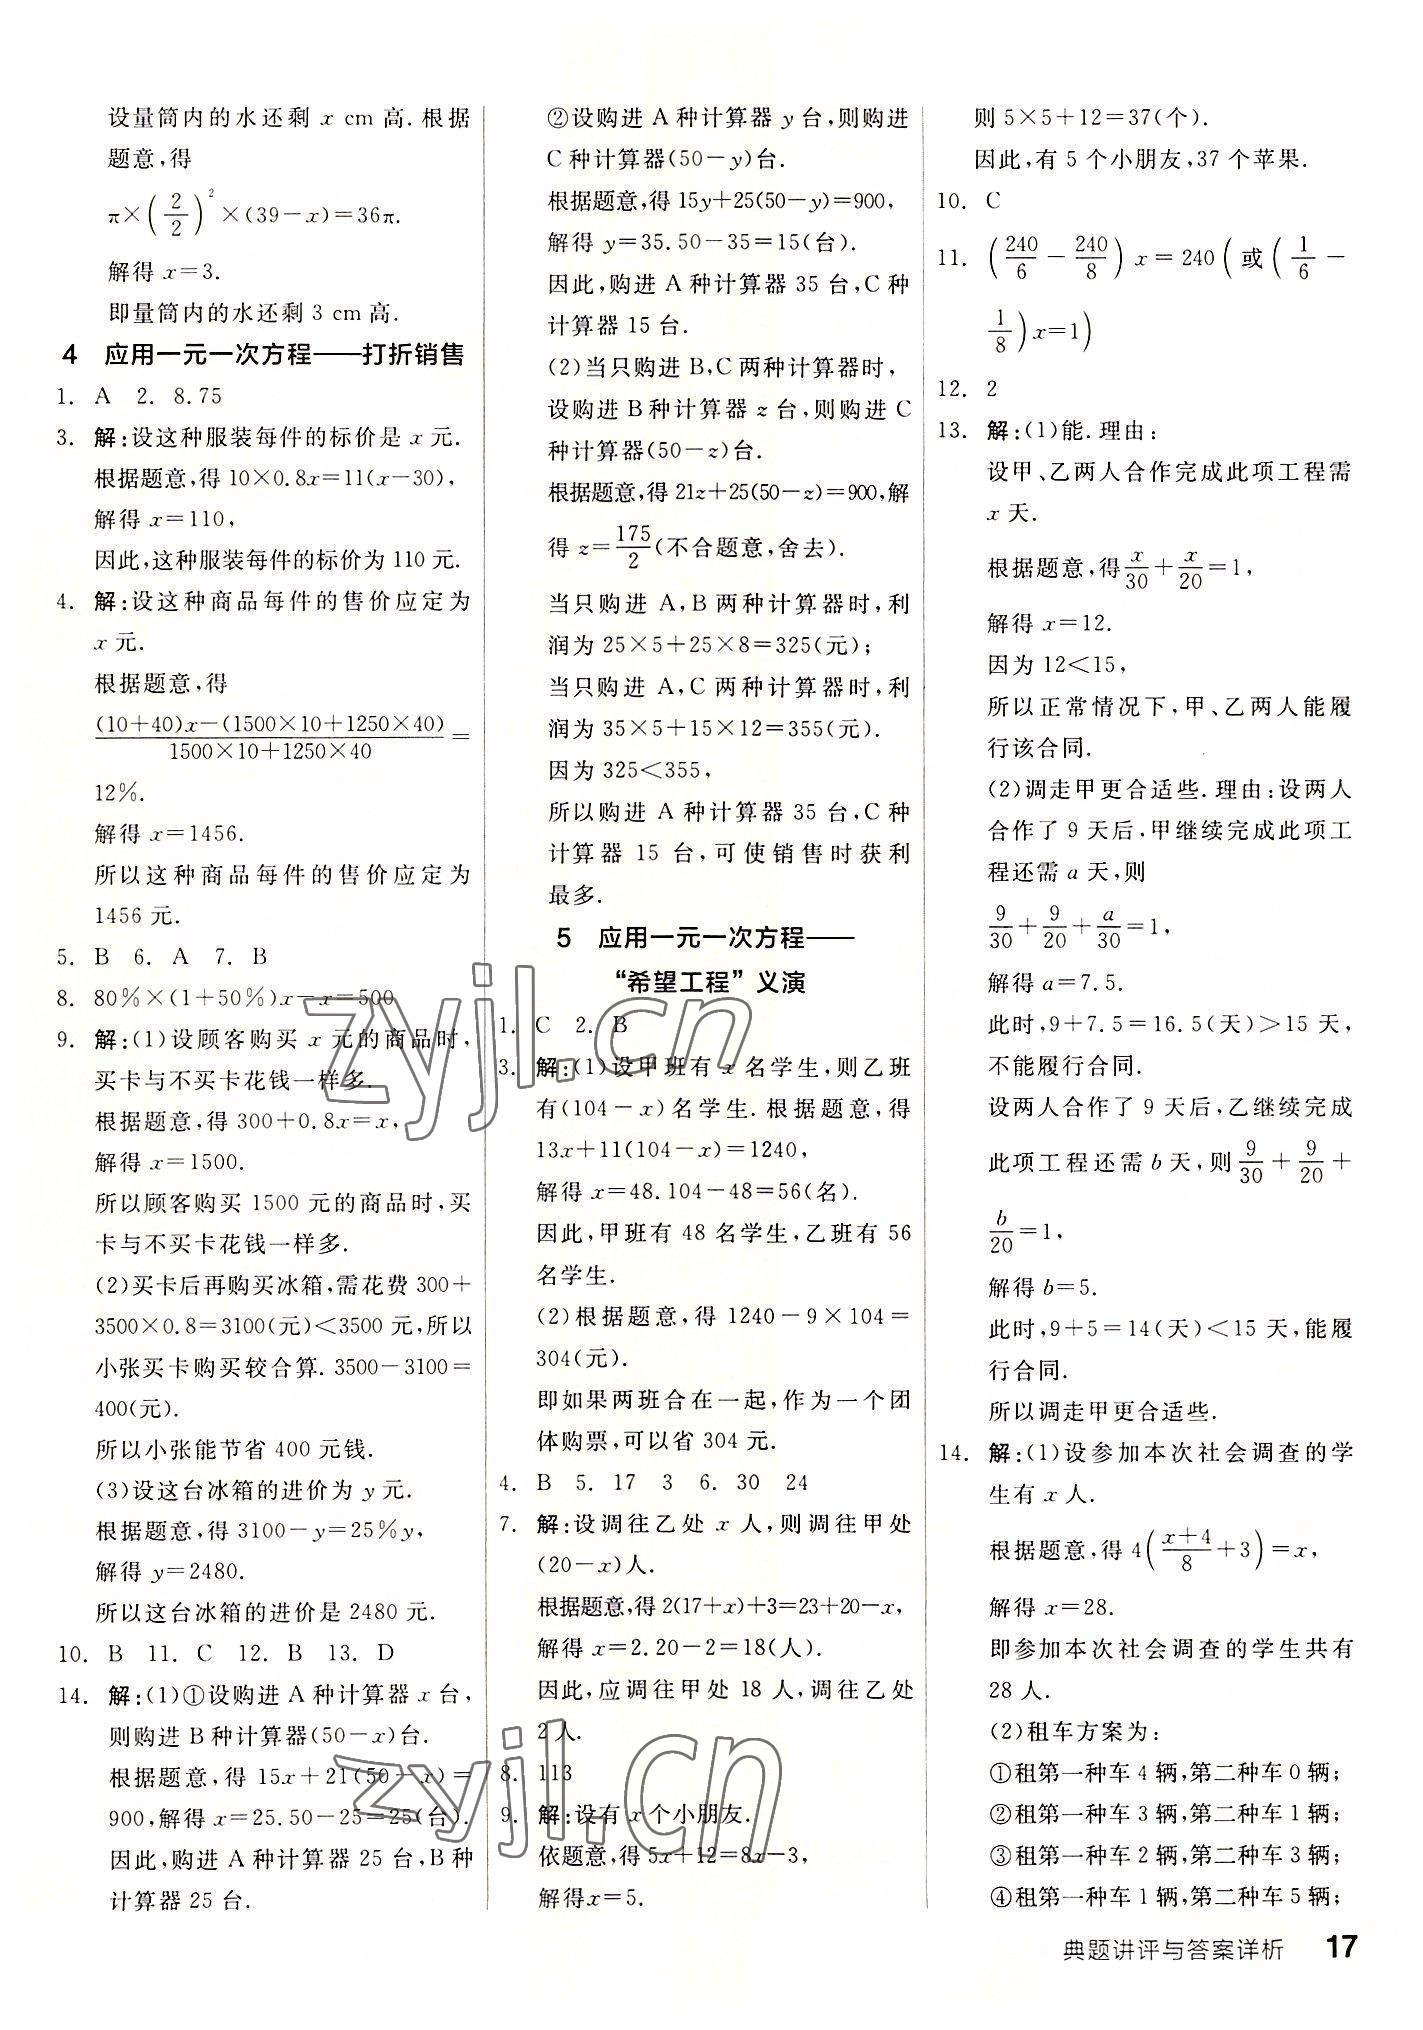 设量筒内的水还剩 x cm 高. 根据
题意,得
π×(2/2)²×(39−x)=36π.
解得 x=3.
即量筒内的水还剩 3 cm 高.
4 应用一元一次方程——打折销售
1. A 2. 8.75
3. 解:设这种服装每件的标价是 x 元.
根据题意,得 10×0.8x=11(x−30),
解得 x=110,
因此,这种服装每件的标价为 110 元.
4. 解:设这种商品每件的售价应定为
x 元.
根据题意,得
((10+40)x−(1500×10+1250×40))/(1500×10+1250×40)=
12%.
解得 x=1456.
所以这种商品每件的售价应定为
1456 元.
5. B 6. A 7. B
8. 80%×(1+50%)x−x=500
9. 解:(1)设顾客购买 x 元的商品时,
买卡与不买卡花钱一样多.
根据题意,得 300+0.8x=x,
解得 x=1500.
所以顾客购买 1500 元的商品时,买
卡与不买卡花钱一样多.
(2)买卡后再购买冰箱,需花费 300+
3500×0.8=3100(元)<3500 元,所以
小张买卡购买较合算. 3500−3100=
400(元).
所以小张能节省 400 元钱.
(3)设这台冰箱的进价为 y 元.
根据题意,得 3100−y=25%y,
解得 y=2480.
所以这台冰箱的进价是 2480 元.
10. B 11. C 12. B 13. D
14. 解:(1)①设购进 A 种计算器 x 台,
则购进 B 种计算器(50−x)台.
根据题意,得 15x+21(50−x)=
900,解得 x=25.50−25=25(台).
因此,购进 A 种计算器 25 台,B 种
计算器 25 台.
②设购进 A 种计算器 y 台,则购进
C 种计算器(50−y)台.
根据题意,得 15y+25(50−y)=900,
解得 y=35.50−35=15(台).
因此,购进 A 种计算器 35 台,C 种
计算器 15 台.
(2)当只购进 B,C 两种计算器时,
设购进 B 种计算器 z 台,则购进 C
种计算器(50−z)台.
根据题意,得 21z+25(50−z)=900,解
得 z=175/2(不合题意,舍去).
当只购进 A,B 两种计算器时,利
润为 25×5+25×8=325(元);
当只购进 A,C 两种计算器时,利
润为 35×5+15×12=355(元).
因为 325<355,
所以购进 A 种计算器 35 台,C 种
计算器 15 台,可使销售时获利
最多.
5 应用一元一次方程——
“希望工程”义演
1. C 2. B
3. 解:(1)设甲班有 x 名学生,则乙班
有(104−x)名学生. 根据题意,得
13x+11(104−x)=1240,
解得 x=48.104−48=56(名).
因此,甲班有 48 名学生,乙班有 56
名学生.
(2)根据题意,得 1240−9×104=
304(元).
即如果两班合在一起,作为一个团
体购票,可以省 304 元.
4. B 5. 17 3 6. 30 24
7. 解:设调往乙处 x 人,则调往甲处
(20−x)人.
根据题意,得 2(17+x)+3=23+20−x,
解得 x=2.20−2=18(人).
因此,应调往甲处 18 人,调往乙处
2 人.
8. 113
9. 解:设有 x 个小朋友.
依题意,得 5x+12=8x−3,
解得 x=5.
则 5×5+12=37(个).
因此,有 5 个小朋友,37 个苹果.
10. C
11. (240/6−240/8)x=240(或(1/6−
1/8)x=1)
12. 2
13. 解:(1)能. 理由:
设甲、乙两人合作完成此项工程需
x 天.
根据题意,得x/30+x/20=1,
解得 x=12.
因为 12<15,
所以正常情况下,甲、乙两人能履
行该合同.
(2)调走甲更合适些. 理由:设两人
合作了 9 天后,甲继续完成此项工
程还需 a 天,则
9/30+9/20+a/30=1,
解得 a=7.5.
此时,9+7.5=16.5(天)>15 天,
不能履行合同.
设两人合作了 9 天后,乙继续完成
此项工程还需 b 天,则9/30+9/20+
b/20=1,
解得 b=5.
此时,9+5=14(天)<15 天,能履
行合同.
所以调走甲更合适些.
14. 解:(1)设参加本次社会调查的学
生有 x 人.
根据题意,得 4((x+4)/8+3)=x,
解得 x=28.
即参加本次社会调查的学生共有
28 人.
(2)租车方案为:
①租第一种车 4 辆,第二种车 0 辆;
②租第一种车 3 辆,第二种车 1 辆;
③租第一种车 2 辆,第二种车 3 辆;
④租第一种车 1 辆,第二种车 5 辆;
典题讲评与答案详析 17
zyjl.cn
zyjl.cn